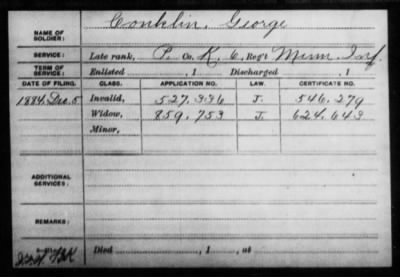 NAME OF SOLDIER: Conklin, George
SERVICE: Late rank, P. Co. K, 6, Reg't Minn. Inf.
TERM OF SERVICE: Enlisted , 1 Discharged , 1
DATE OF FILING. CLASS. APPLICATION NO. LAW. CERTIFICATE NO.
1884, Dec. 5 Invalid, 527.336 J. 546.279
Widow, 859.753 J. 624.643
Minor,
ADDITIONAL SERVICES:
REMARKS:
Died , 1 , at